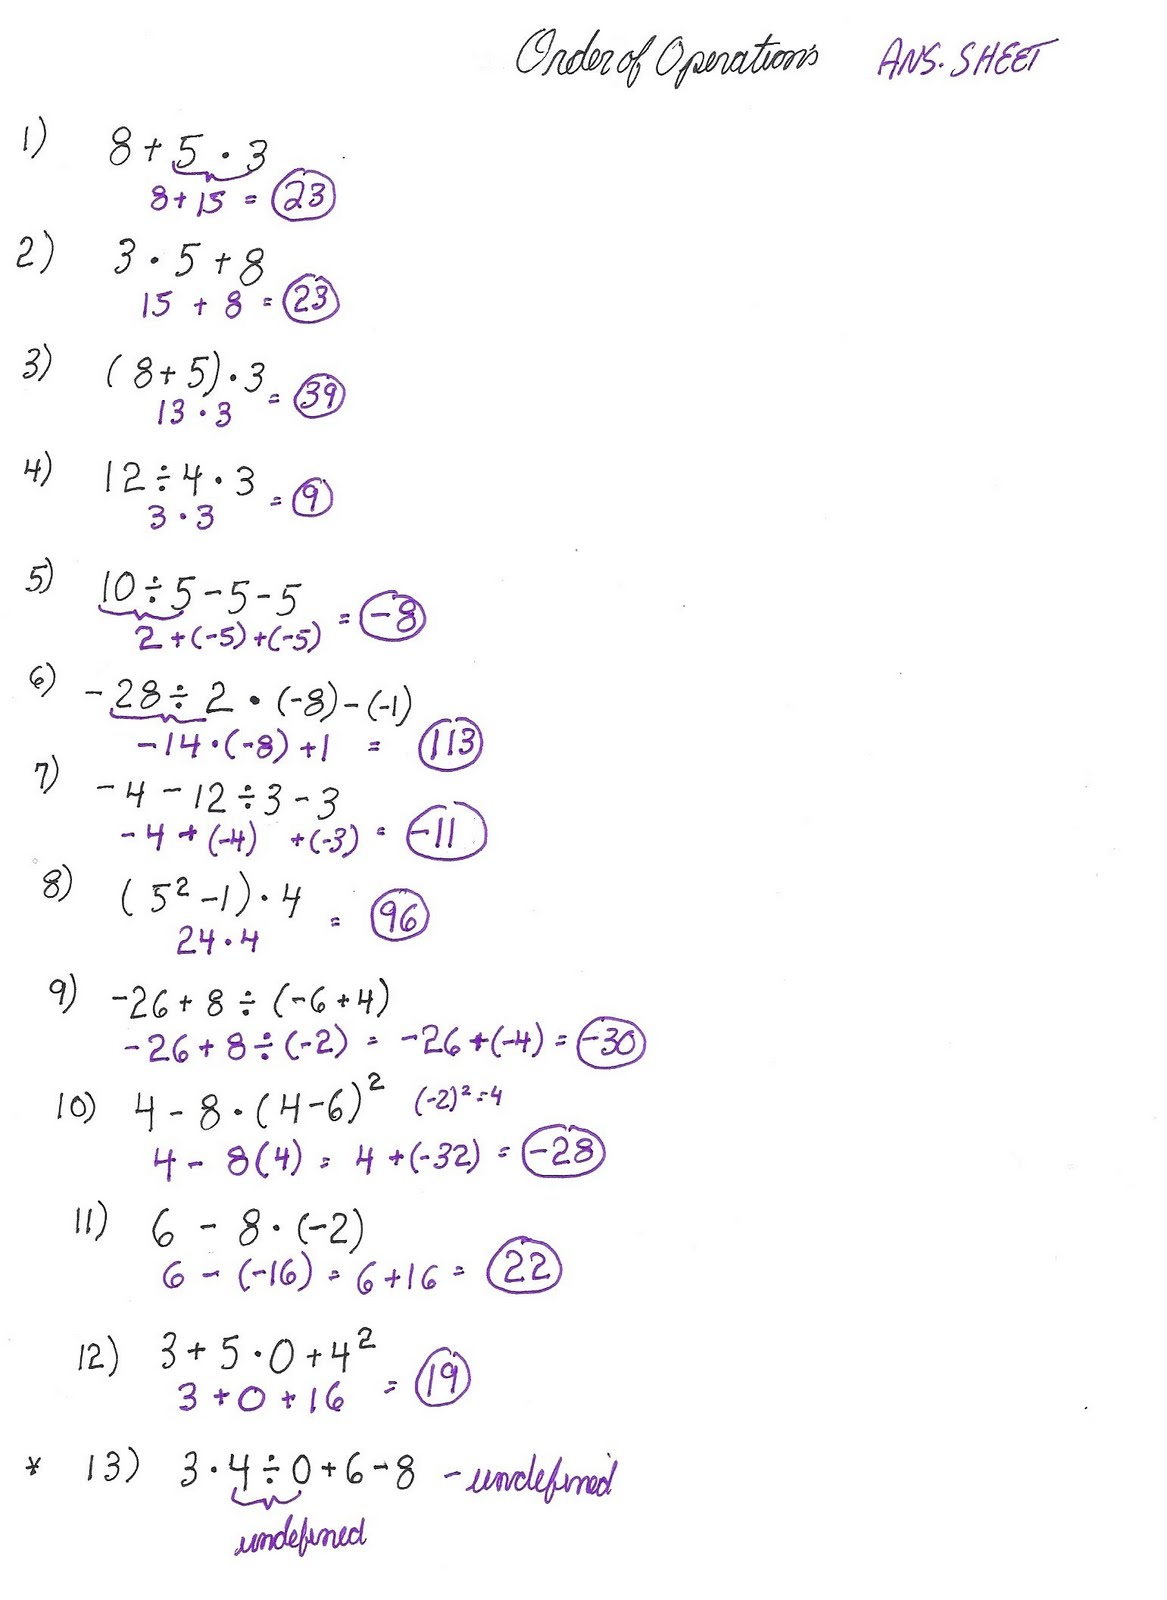 Order of Operations ANS. SHEET
1) 8 + 5 · 3
8 + 15 = 23
2) 3 · 5 + 8
15 + 8 = 23
3) (8 + 5) · 3
13 · 3 = 39
4) 12 ÷ 4 · 3
3 · 3 = 9
5) 10 ÷ 5 - 5 - 5
2 + (-5) + (-5) = -8
6) -28 ÷ 2 · (-8) - (-1)
-14 · (-8) + 1 = 113
7) -4 - 12 ÷ 3 - 3
-4 + (-4) + (-3) = -11
8) (5² - 1) · 4
24 · 4 = 96
9) -26 + 8 ÷ (-6 + 4)
-26 + 8 ÷ (-2) = -26 + (-4) = -30
10) 4 - 8 · (4 - 6)² (-2)² = 4
4 - 8(4) = 4 + (-32) = -28
11) 6 - 8 · (-2)
6 - (-16) = 6 + 16 = 22
12) 3 + 5 · 0 + 4²
3 + 0 + 16 = 19
* 13) 3 · 4 ÷ 0 + 6 - 8 - undefined
undefined